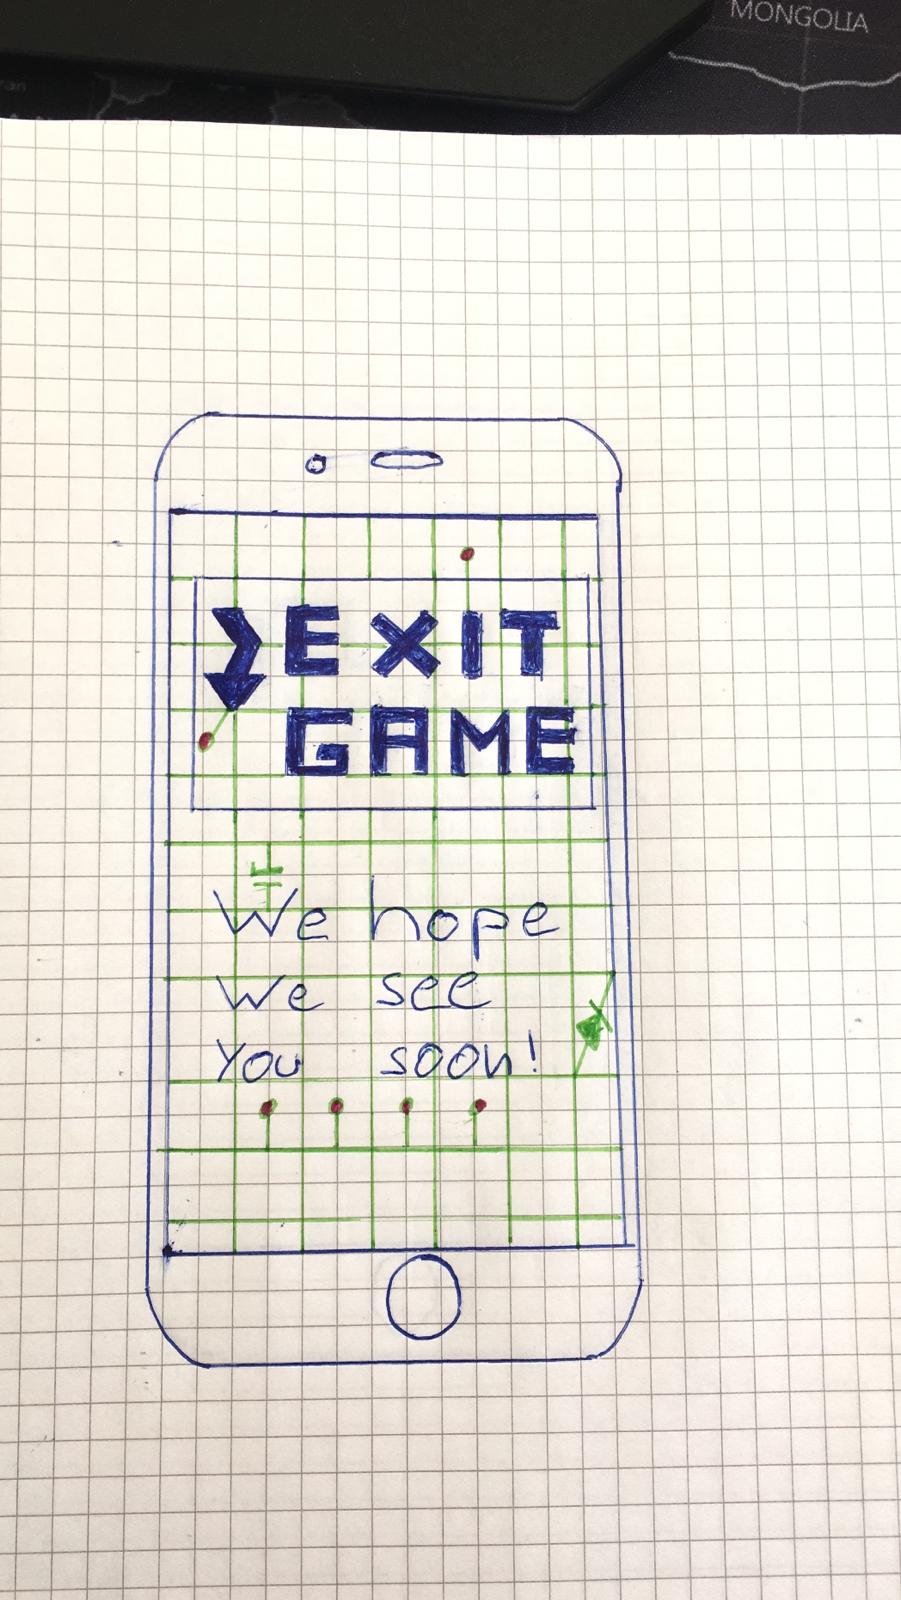 MONGOLIA
EXIT
GAME
We hope
We see
You soon!